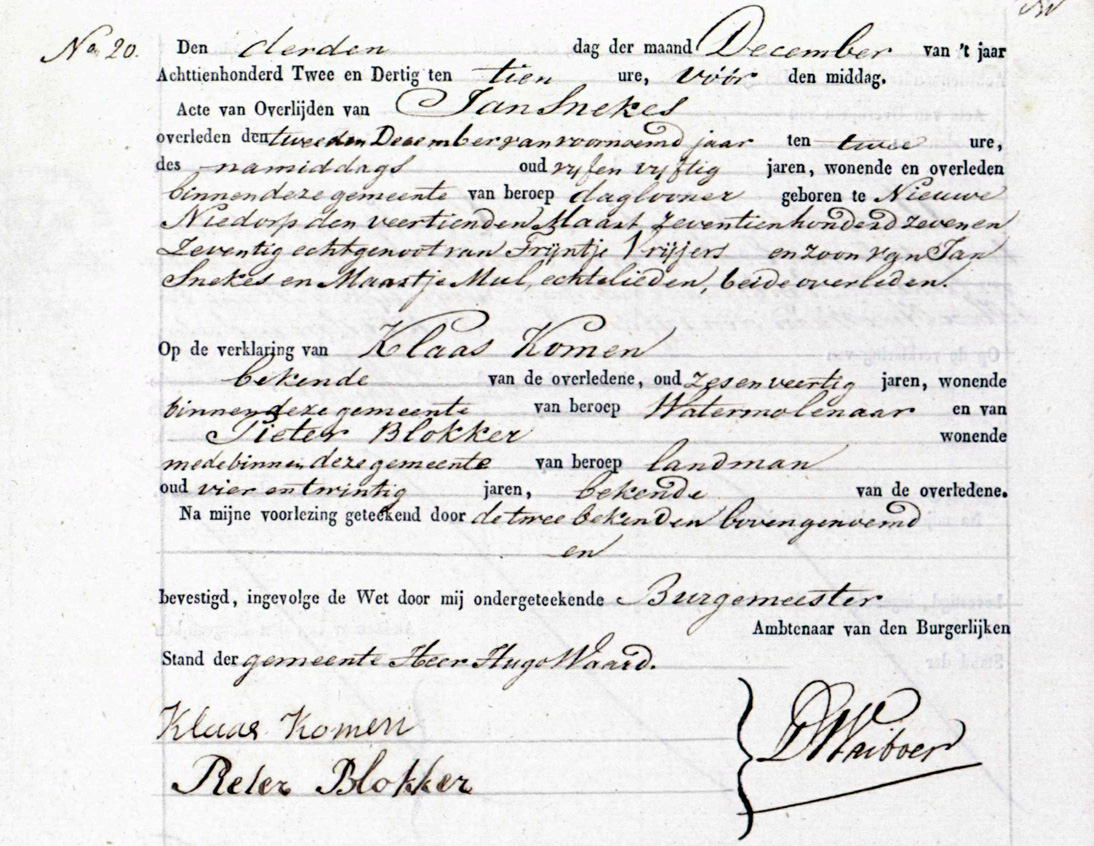 No 20. Den derden dag der maand December van 't jaar
Achttienhonderd Twee en Dertig ten tien ure, vóór den middag.
Acte van Overlijden van Jan Snekes
overleden den tweeden December van voornoemd jaar ten twee ure,
des namiddags oud vyf en vyftig jaren, wonende en overleden
binnen deze gemeente van beroep daglooner geboren te Nieuwe
Niedorp den veertienden Maart Zeventienhonderd zeven en
Zeventig echtgenoot van Trijntje Vrijjers en zoon van Jan
Snekes en Maartje Mul, echtelieden, beide overleden.
Op de verklaring van Klaas Komen
bekende van de overledene, oud zes en veertig jaren, wonende
binnen deze gemeente van beroep Watermolenaar en van
Pieter Blokker wonende
mede binnen deze gemeente van beroep landman
oud vier en twintig jaren, bekende van de overledene.
Na mijne voorlezing geteekend door de twee bekenden bovengenoemd
en
bevestigd, ingevolge de Wet door mij ondergeteekende Burgemeester
Ambtenaar van den Burgerlijken
Stand der gemeente Heer Hugo Waard.
Klaas Komen
Pieter Blokker
D Waiboer